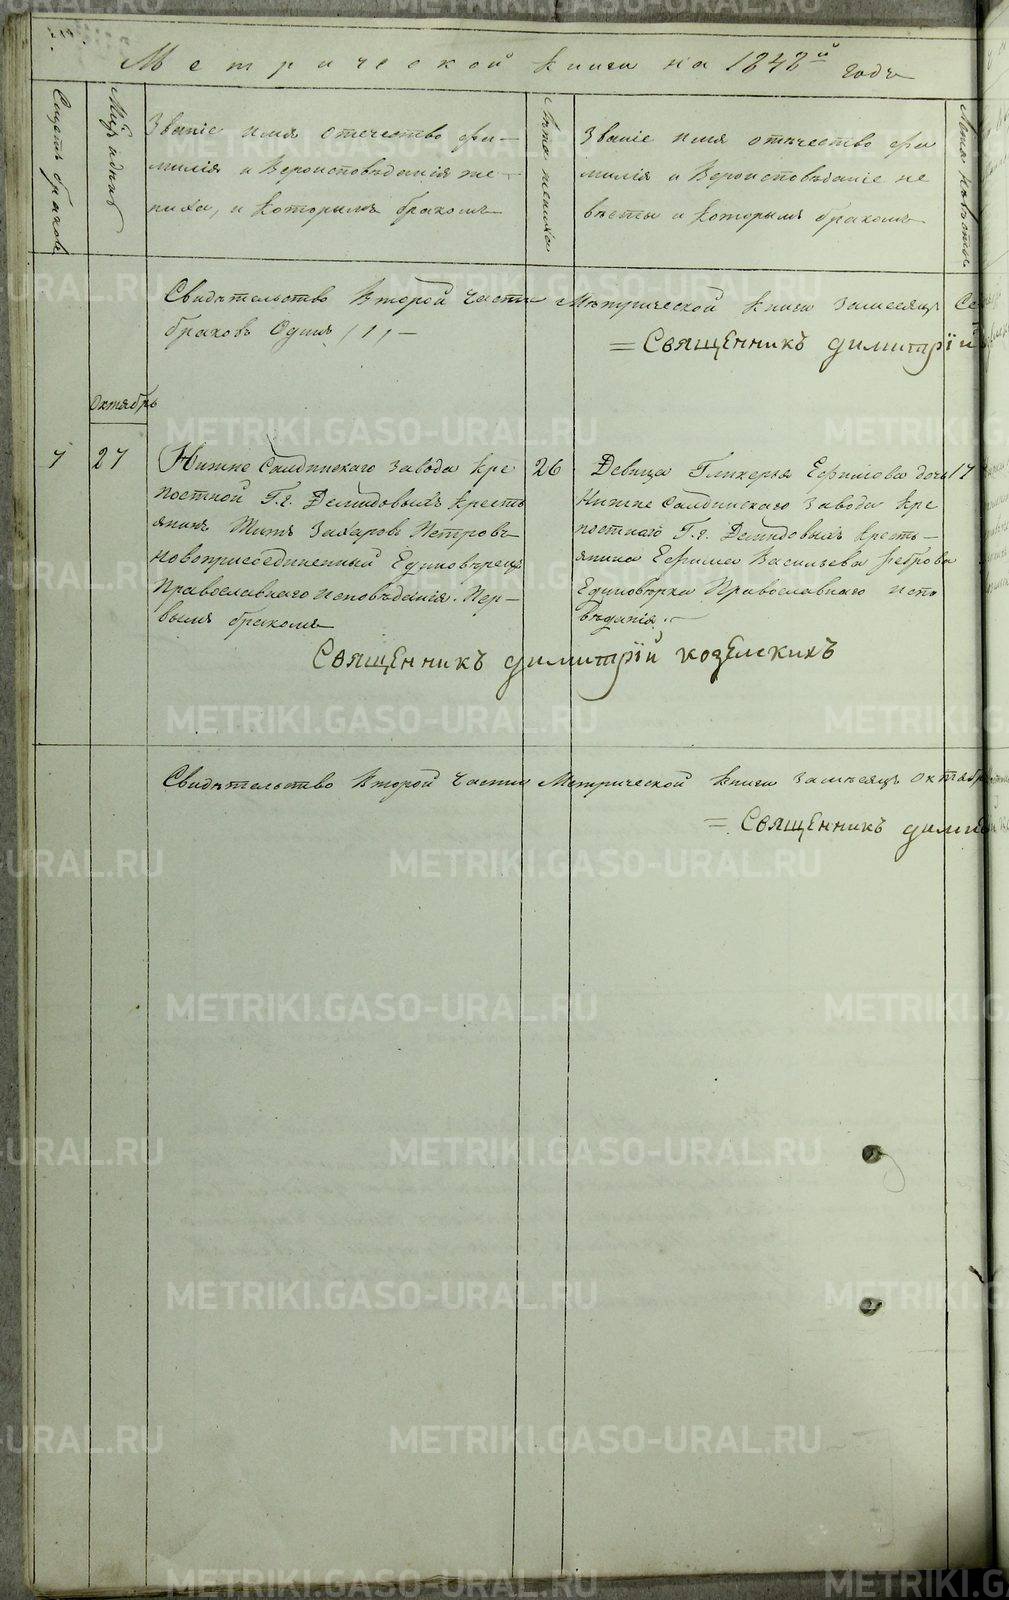 Метрической книги на 1848й годъ
Счетъ браковъ
Мѣс. и день
Званіе имя отечество фа-
милія и Вероисповѣданія же-
ниха, и которымъ бракомъ
Лѣта жениха
Званіе имя отечество фа
милія и Вероисповѣданіе не
вѣсты и которымъ бракомъ
Лѣта невѣсты
Свидѣтельство второй части Метрической книги за месяцъ Се
браковъ Одинъ /1/ –
= Священникъ Димитрій
Октябрь
7 27
Нижне Салдинскаго Завода кре
постной Г.г. Демидовыхъ кресть
янинъ Титъ Захаровъ Петровъ
новоприсоединенный Единовѣрецъ
Православнаго исповѣданія. Пер-
вымъ бракомъ
26
Девица Гликерья Ефимова дочь
Нижне Салдинскаго Завода кре
постнаго Г.г. Демидовыхъ кресть-
янина Ефима Васильева Реброва
Единовѣрка Православнаго испо
вѣданія.
17
Священникъ Димитрій Козелскихъ
Свидѣтельство второй части Метрической книги за месяцъ Октябр
= Священникъ Димит
METRIKI.GASO-URAL.RU